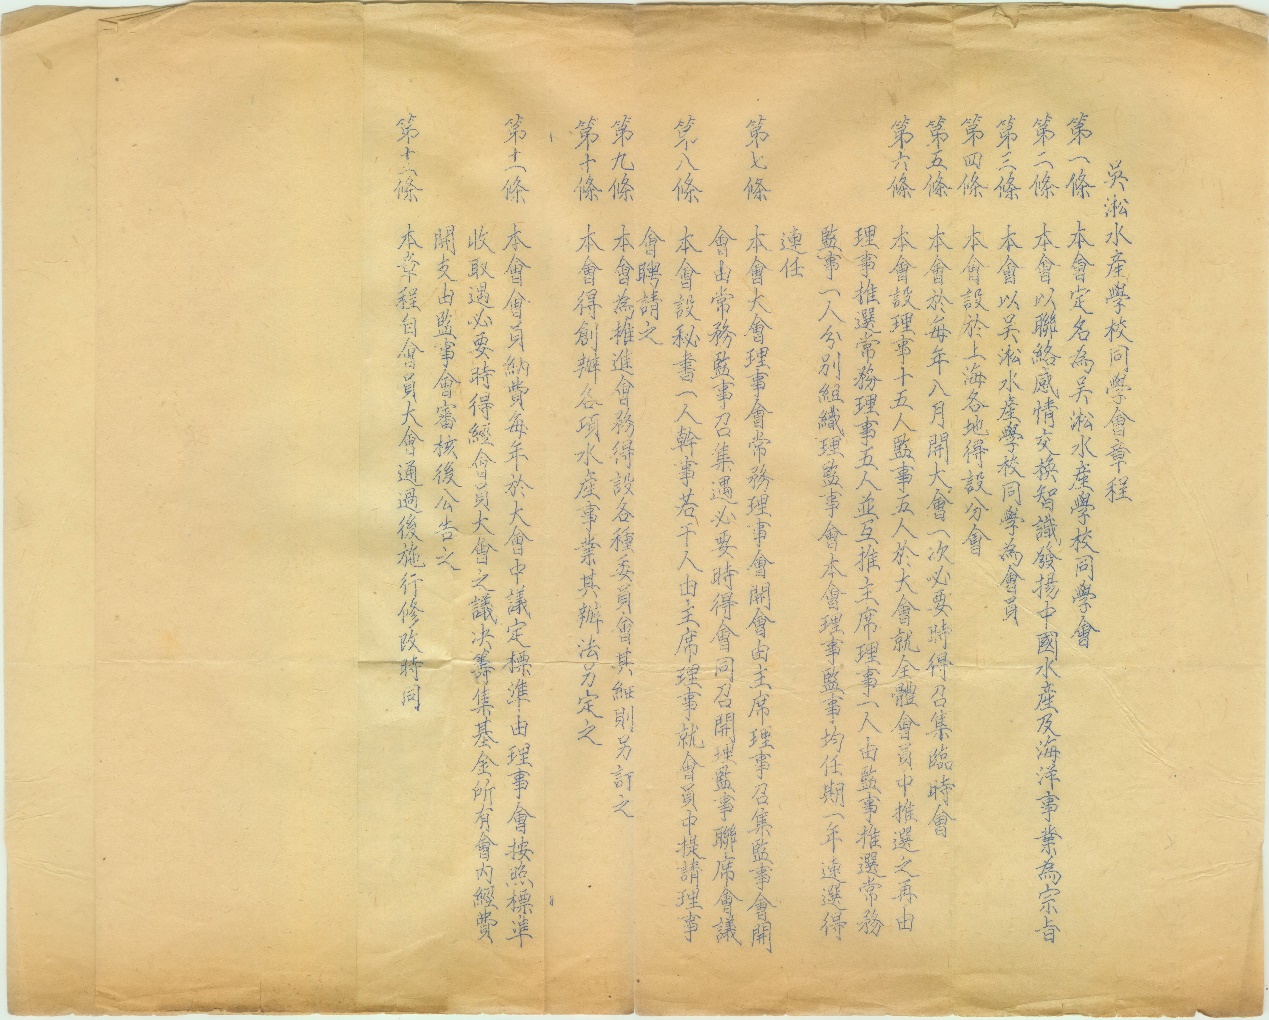 吳淞水產學校同學會章程
第一條 本會定名為吳淞水產學校同學會
第二條 本會以聯絡感情交換智識發揚中國水產及海洋事業為宗旨
第三條 本會以吳淞水產學校同學為會員
第四條 本會設於上海各地得設分會
第五條 本會於每年八月開大會一次必要時得召集臨時會
第六條 本會設理事十五人監事五人於大會就全體會員中推選之再由
理事推選常務理事五人並互推主席理事一人由監事推選常務
監事一人分別組織理監事會本會理事監事均任期一年連選得
連任
第七條 本會大會理事會常務理事會開會由主席理事召集監事會開
會由常務監事召集遇必要時得會同召開理監事聯席會議
第八條 本會設秘書一人幹事若干人由主席理事就會員中提請理事
會聘請之
第九條 本會為推進會務得設各種委員會其細則另訂之
第十條 本會得創辦各項水產事業其辦法另定之
第十一條 本會會員納費每年於大會中議定標準由理事會按照標準
收取遇必要時得經會員大會之議決籌集基金所有會內經費
開支由監事會審核後公告之
第十二條 本章程自會員大會通過後施行修改時同